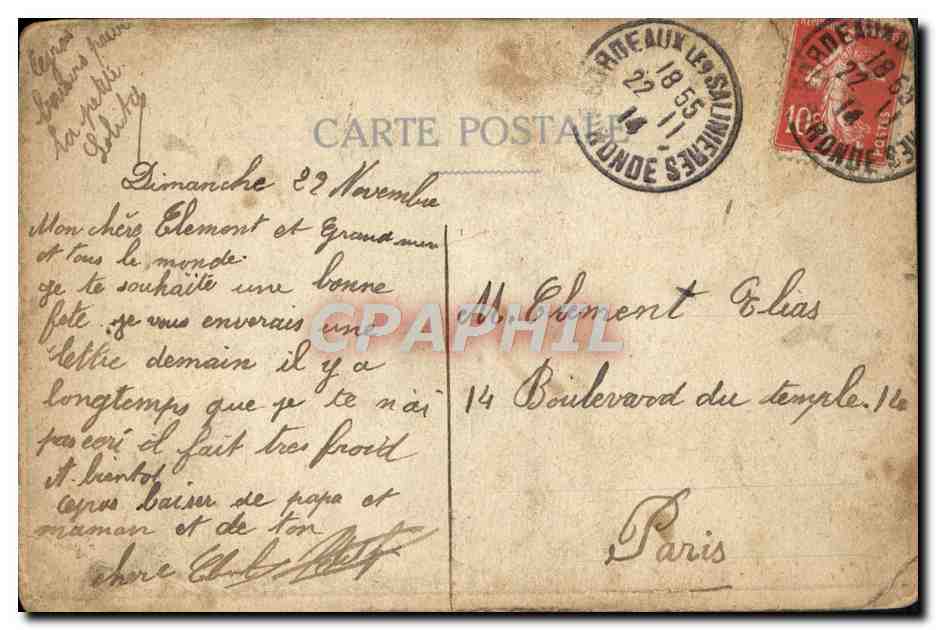 Gros
baisers pour
la petite
Lolita
CARTE POSTALE
BORDEAUX LES SALINIERES
18 55
22 11
14
GIRONDE
10c
POSTES
Dimanche 22 Novembre
Mon chère Clemont et Grand mere
et tous le monde.
je te souhaite une bonne
fete. je vous enverais une
lettre demain il y a
longtemps que je te n'ai
pas ecri il fait tres froid
A bientot
Gros baiser de papa et
maman et de ton
chere
M. Clement Elias
14 Boulevard du temple. 14
Paris
CPAPHIL